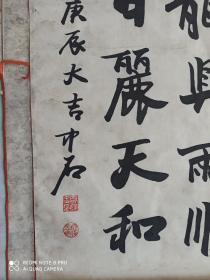 龍興雨順
日麗天和
庚辰大吉中石
REDMI NOTE 8 PRO
AI QUAD CAMERA